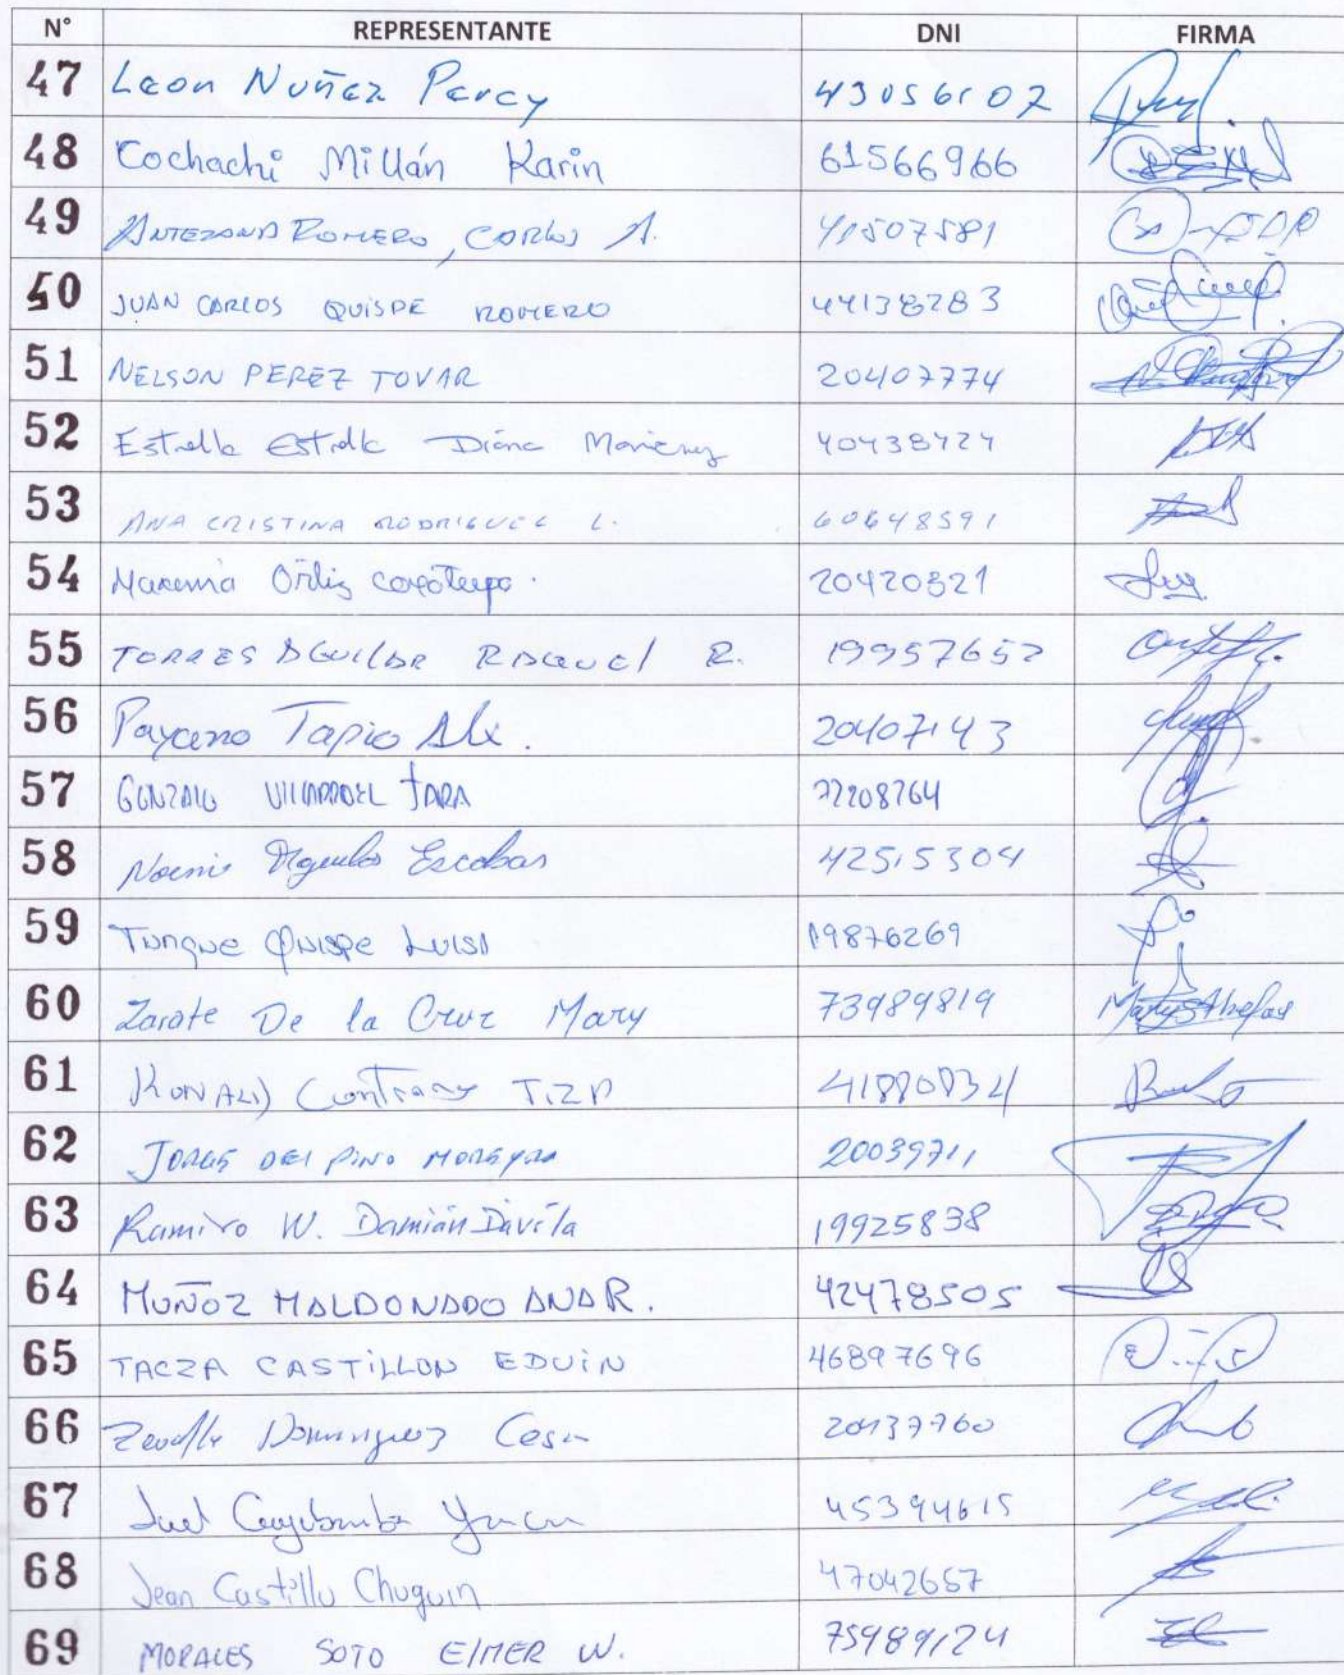 N° REPRESENTANTE DNI FIRMA
47 Leon Nuñez Percy 43056107
48 Cochachi Millán Karin 61566966
49 ANTEZANA ROMERO, CARLOS A. 41507581
50 JUAN CARLOS QUISPE ROMERO 44138283
51 NELSON PEREZ TOVAR 20407774
52 Estrella Estrella Diana 40438424
53 ANA CRISTINA RODRIGUEZ L. 60648591
54 Ortiz 20420321
55 TORRES AGUILAR RAQUEL R. 19957652
56 Payano Tapia Alx. 20407143
57 GONZALO VILLARROEL JARA 72208764
58 Noemi Escobar 42515304
59 Tunque Quispe Luisa 19876269
60 Zarate De la Cruz Mary 73989819
61 RONALD 41880834
62 JORGE DEL PINO MOREYRA 20039711
63 Ramiro W. Damián Dávila 19925838
64 MUÑOZ MALDONADO ANA R. 42478505
65 TACZA CASTILLON EDUIN 46897696
66 Dominguez Cesar
67 45394615
68 Jean Castillo Chuquin 47042657
69 MORALES SOTO ElMER W. 75989124